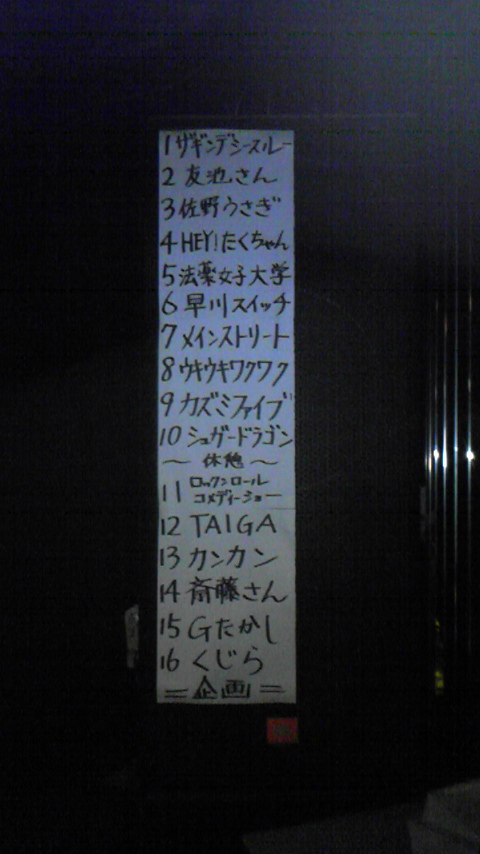 1 ザギンデシースルー
2 友池さん
3 佐野うさぎ
4 HEY!たくちゃん
5 法薬女子大学
6 早川スイッチ
7 メインストリート
8 ウキウキワクワク
9 カズミファイブ
10 シュガードラゴン
〜 休憩 〜
11 ロックンロール
コメディーショー
12 TAIGA
13 カンカン
14 斎藤さん
15 Gたかし
16 くじら
＝企画＝